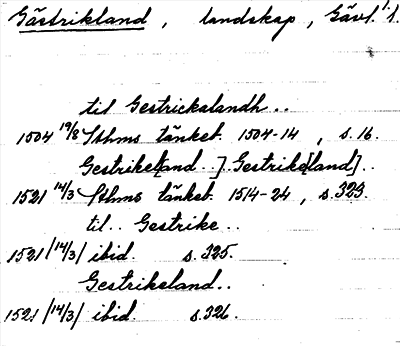 Gästrikland, landskap, Gävl. l.
til Gestrickalandh..
1504 19/8 Sthms tänkeb. 1504-14, s. 16.
Gestrike[land..] Gestrike[land]..
1521 14/3 Sthms tänkeb. 1514-24, s. 323.
til.. Gestrike..
1521 /14/3/ ibid. s. 325.
Gestrikeland..
1521 /14/3/ ibid. s. 326.